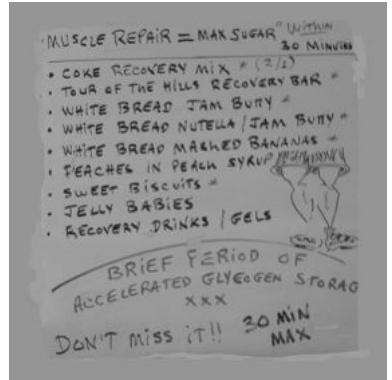 "MUSCLE REPAIR = MAX SUGAR" WITHIN
30 MINUTES
• COKE RECOVERY MIX * (2/1)
• TOUR OF THE HILLS RECOVERY BAR *
• WHITE BREAD JAM BUTTY *
• WHITE BREAD NUTELLA / JAM BUTTY *
• WHITE BREAD MASHED BANANAS *
• PEACHES IN PEACH SYRUP
• SWEET BISCUITS *
• JELLY BABIES
• RECOVERY DRINKS / GELS
BRIEF PERIOD OF
ACCELERATED GLYCOGEN STORAG
XXX
DON'T MISS IT!! 30 MIN
MAX